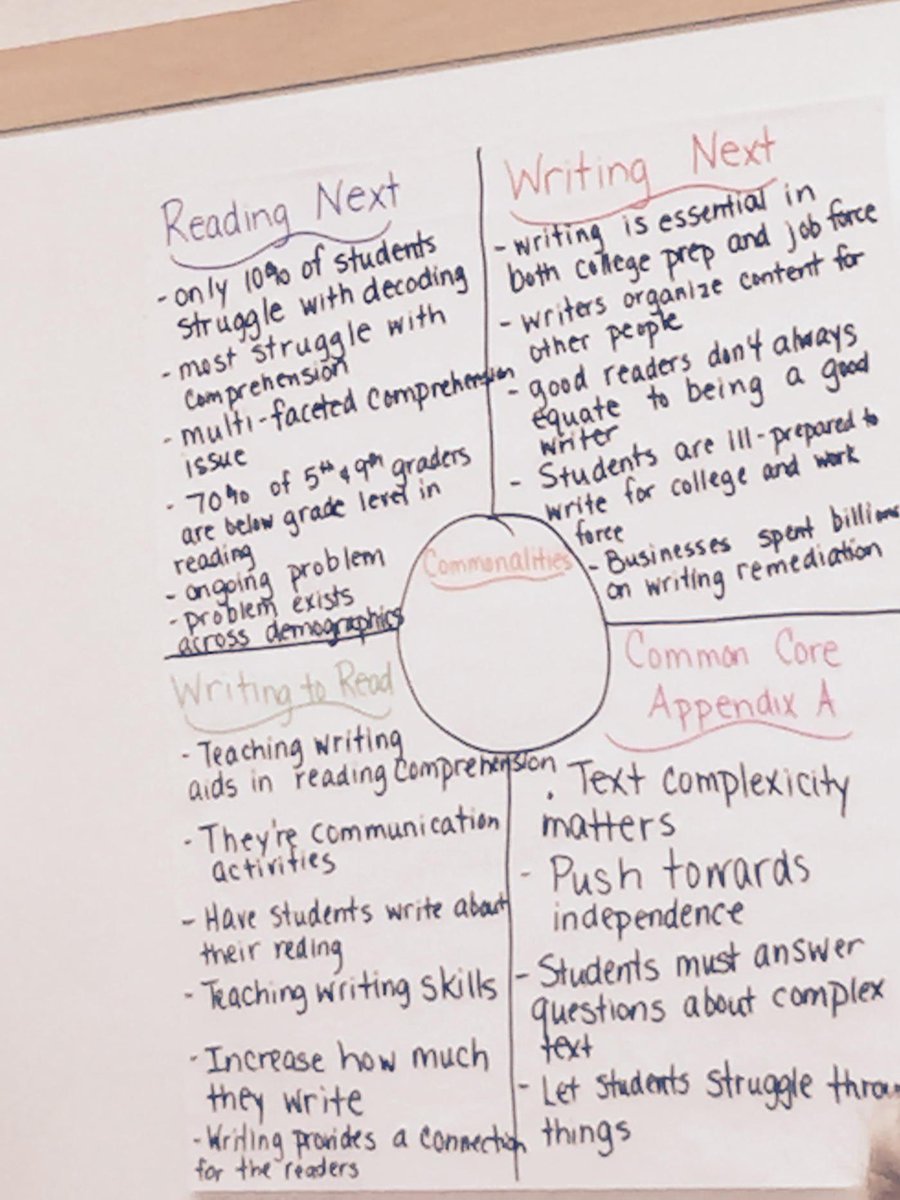 Reading Next
- only 10% of students
struggle with decoding
- most struggle with
comprehension
- multi-faceted comprehension
issue
- 70% of 5th & 9th graders
are below grade level in
reading
- ongoing problem
- problem exists
across demographics
Writing Next
- writing is essential in
both college prep and job force
- writers organize content for
other people
- good readers don't always
equate to being a good
writer
- Students are ill-prepared to
write for college and work
force
- Businesses spent billions
on writing remediation
Commonalities
Writing to Read
- Teaching writing
aids in reading comprehension
- They're communication
activities
- Have students write about
their reding
- Teaching writing skills
- Increase how much
they write
- Writing provides a connection
for the readers
Common Core
Appendix A
. Text complexicity
matters
- Push towards
independence
- Students must answer
questions about complex
text
- Let students struggle
things